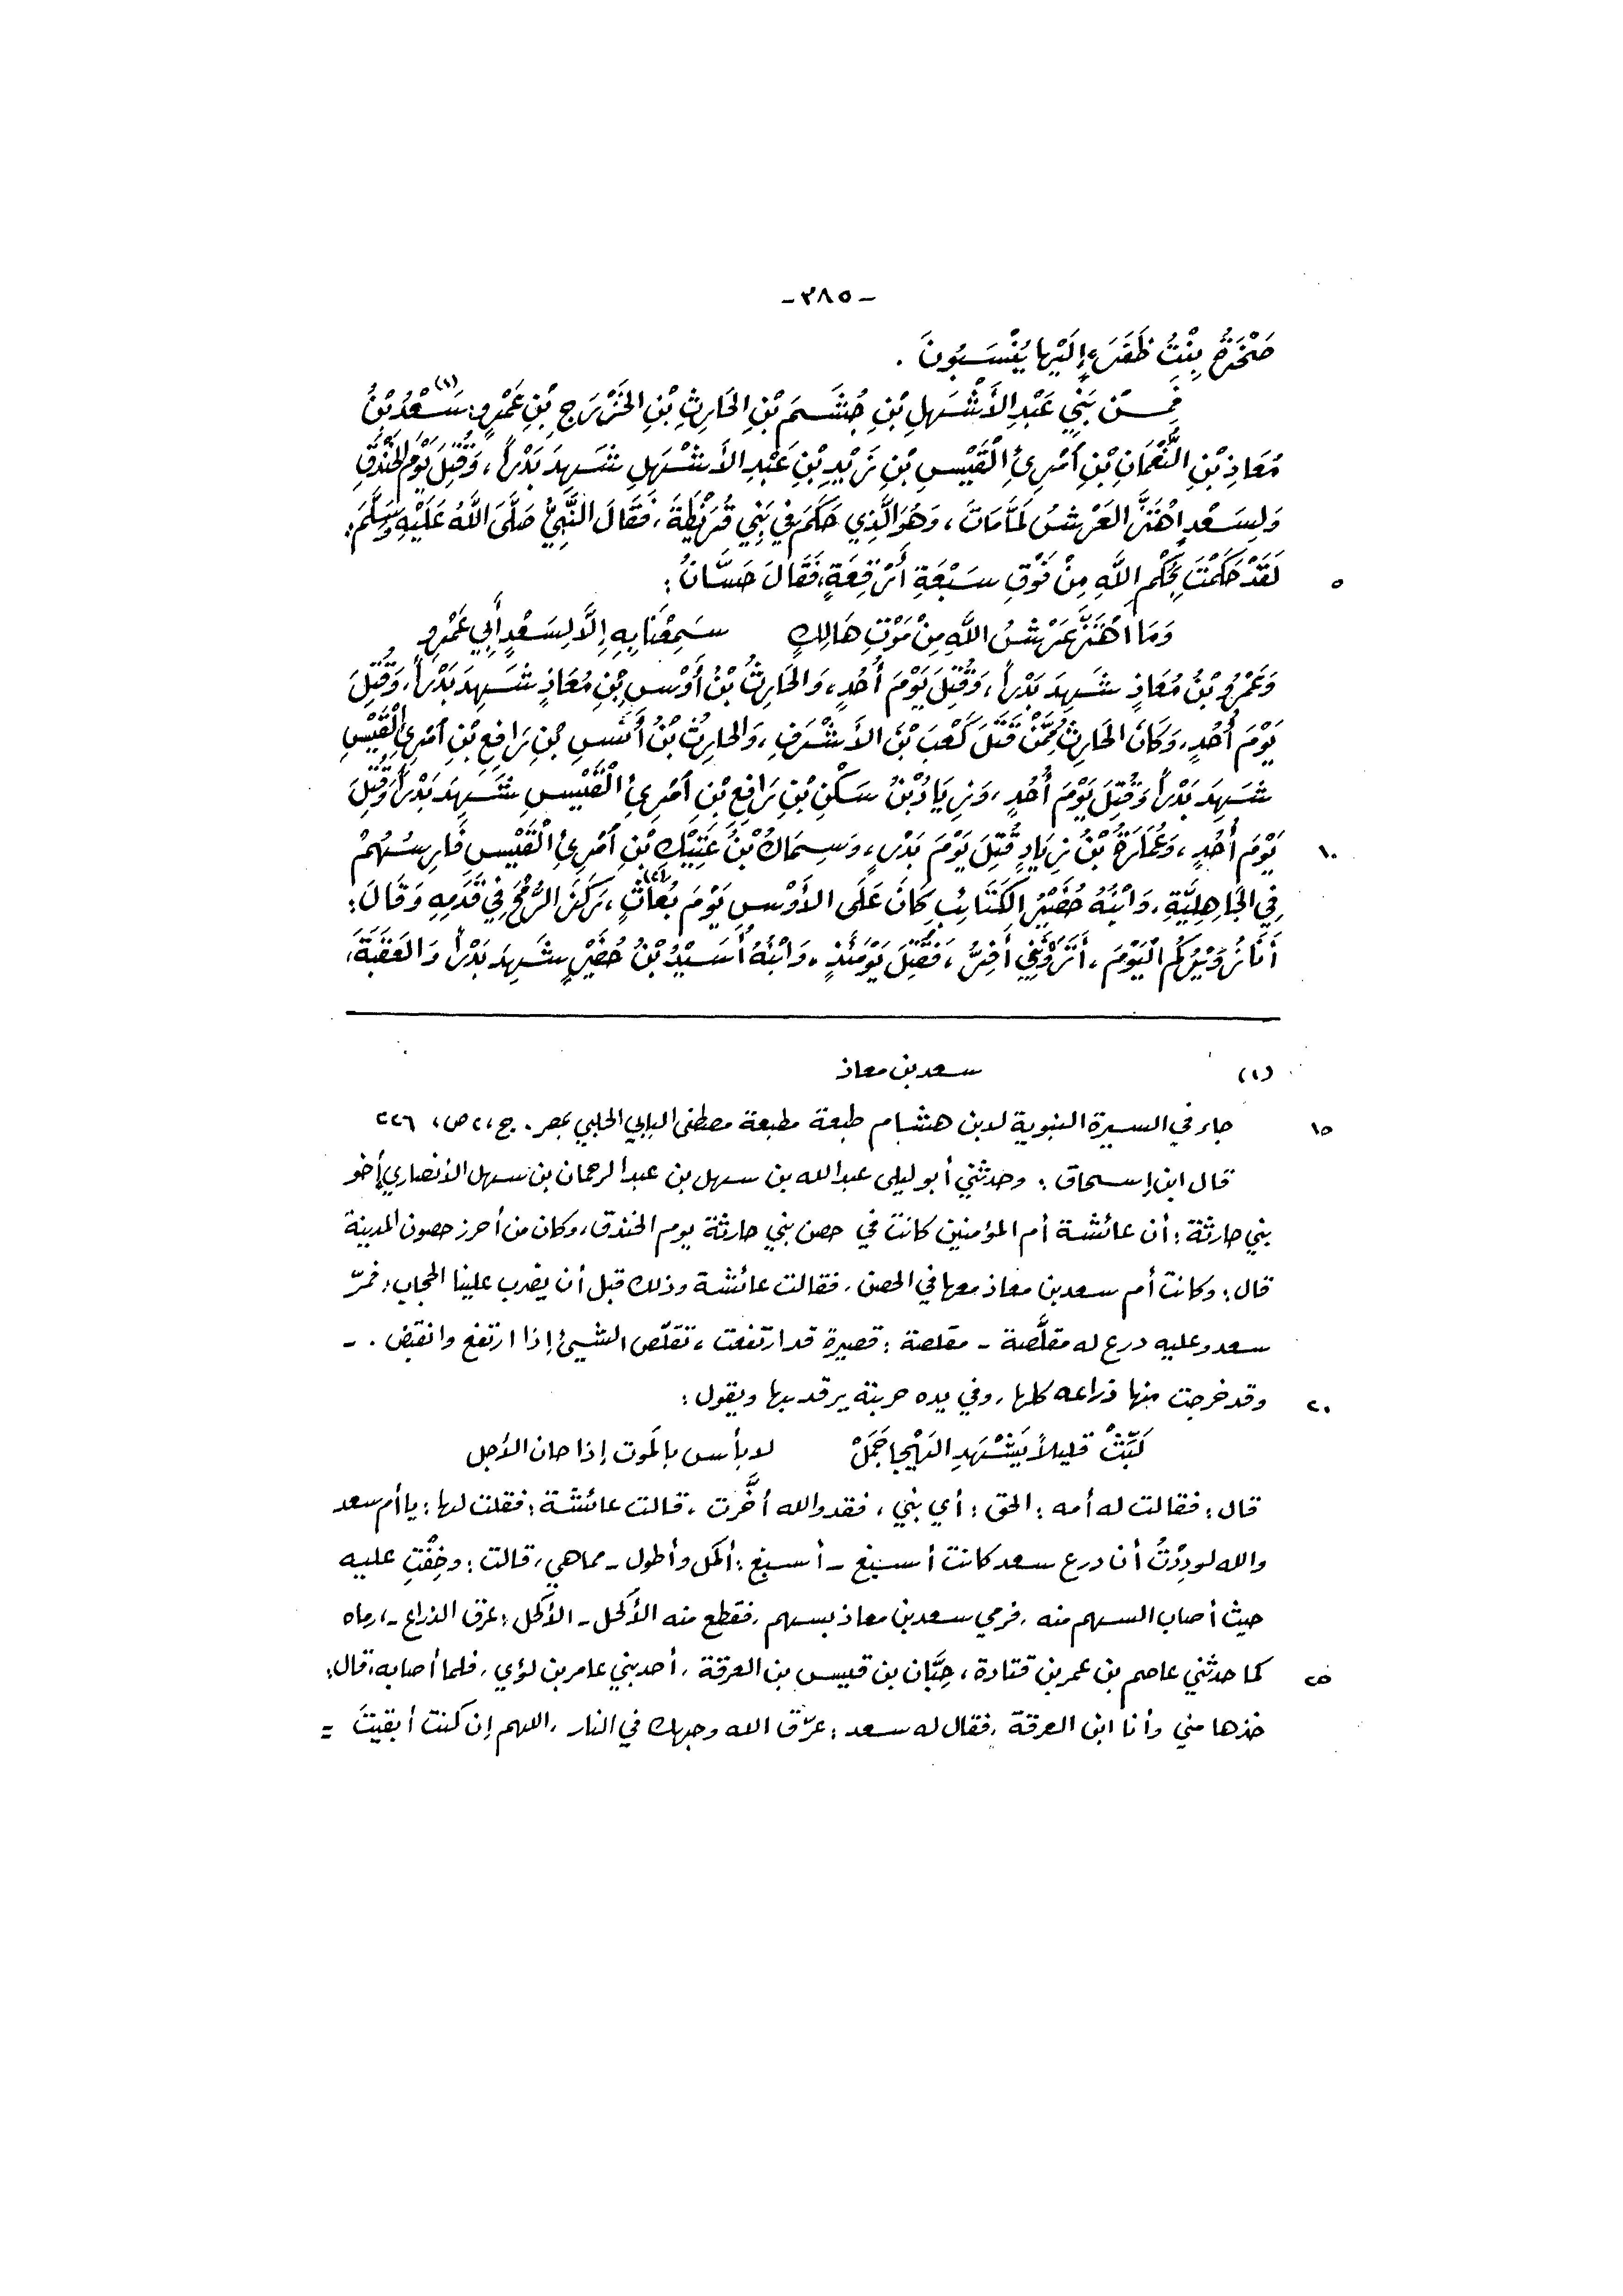 -٣٨٥-
صَخْرَةُ بِنْتُ ظَفَرَ، إِلَيْهَا يُنْسَبُونَ .
فَمِنْ بَنِي عَبْدِ الأَشْهَلِ بْنِ جُشَمَ بْنِ الحَارِثِ بْنِ الخَزْرَجِ بْنِ عَمْرٍو: سَعْدُ (١) بْنُ
مُعَاذِ بْنِ النُّعْمَانِ بْنِ امْرِئِ الْقَيْسِ بْنِ زَيْدِ بْنِ عَبْدِ الأَشْهَلِ شَهِدَ بَدْراً، وَقُتِلَ يَوْمَ الخَنْدَقِ
وَلِسَعْدٍ اهْتَزَّ العَرْشُ لَمَّا مَاتَ، وَهُوَ الَّذِي حَكَمَ فِي بَنِي قُرَيْظَةَ، فَقَالَ النَّبِيُّ صَلَّى اللَّهُ عَلَيْهِ وَسَلَّمَ:
٥ لَقَدْ حَكَمْتَ بِحُكْمِ اللَّهِ مِنْ فَوْقِ سَبْعَةِ أَرْقِعَةٍ، فَقَالَ حَسَّانُ:
وَمَا اهْتَزَّ عَرْشُ اللَّهِ مِنْ مَوْتِ هَالِكٍ سَمِعْنَا بِهِ إِلَّا لِسَعْدٍ أَبِي عَمْرِو
وَعَمْرُو بْنُ مُعَاذٍ شَهِدَ بَدْراً، وَقُتِلَ يَوْمَ أُحُدٍ، وَالحَارِثُ بْنُ أَوْسِ بْنِ مُعَاذٍ شَهِدَ بَدْراً، وَقُتِلَ
يَوْمَ أُحُدٍ، وَكَانَ الحَارِثُ مِمَّنْ قَتَلَ كَعْبَ بْنَ الأَشْرَفِ، وَالحَارِثُ بْنُ أَنَسِ بْنِ رَافِعِ بْنِ امْرِئِ الْقَيْسِ
شَهِدَ بَدْراً وَقُتِلَ يَوْمَ أُحُدٍ، وَزِيَادُ بْنُ سَكَنِ بْنِ رَافِعِ بْنِ امْرِئِ الْقَيْسِ شَهِدَ بَدْراً وَقُتِلَ
١٠ يَوْمَ أُحُدٍ، وَعُمَارَةُ بْنُ زِيَادٍ قُتِلَ يَوْمَ بَدْرٍ، وَسِمَاكُ بْنُ عَتِيْكِ بْنِ امْرِئِ الْقَيْسِ فَارِسُهُمْ
فِي الجَاهِلِيَّةِ، وَابْنُهُ حُضَيْرُ الكَتَائِبِ كَانَ عَلَى الأَوْسِ يَوْمَ بُعَاثٍ (٢)، رَكَزَ الرُّمْحَ فِي قَدَمِهِ وَقَالَ:
أَنَا زُوَيْرُكُمُ الْيَوْمَ، أَتَرَوْنَنِي أَفِرُّ، فَقُتِلَ يَوْمَئِذٍ. وَابْنُهُ أُسَيْدُ بْنُ حُضَيْرٍ شَهِدَ بَدْراً وَالعَقَبَةَ،
(١) سعد بن معاذ
١٥ جاء في السيرة النبوية لابن هشام طبعة مطبعة مصطفى البابي الحلبي بمصر. ج، ٢ ص، ٢٢٦
قال ابن إسحاق: وحدثني أبو ليلى عبدالله بن سهل بن عبدالرحمان بن سهل الأنصاري أخو
بني حارثة: أن عائشة أم المؤمنين كانت في حصن بني حارثة يوم الخندق، وكان من أحرز حصون المدينة
قال: وكانت أم سعد بن معاذ معها في الحصن، فقالت عائشة وذلك قبل أن يضرب علينا الحجاب: فمرّ
سعد وعليه درع له مقلَّصة - مقلصة: قصيرة قد ارتفعت، تقلّص الشيئ إذا ارتفع وانقبض. -
٢٠ وقد خرجت منها ذراعه كلها، وفي يده حربته يرقد بها ويقول:
لَبِّثْ قليلاً يَشْهَدِ الهَيْجا جَمَلْ لا بأس بالموت إذا حان الأجل
قال: فقالت له أمه: الحق: أي بني، فقد والله أخَّرت، قالت عائشة: فقلت لها: يا أم سعد
والله لودِدْتُ أن درع سعد كانت أسبغ - أسبغ: أكمل وأطول - مما هي، قالت: وخِفْتِ عليه
حيث أصاب السهم منه، فرمي سعد بن معاذ بسهم، فقطع منه الأكحل - الأكحل: عرق الذراع -، رماه
٢٥ كما حدثني عاصم بن عمر بن قتادة، حِبَّان بن قيس بن العرقة، أحد بني عامر بن لؤي، فلما أصابه، قال:
خذها مني وأنا ابن العرقة، فقال له سعد: عرّق الله وجهك في النار، اللهم إن كنت أبقيتَ =